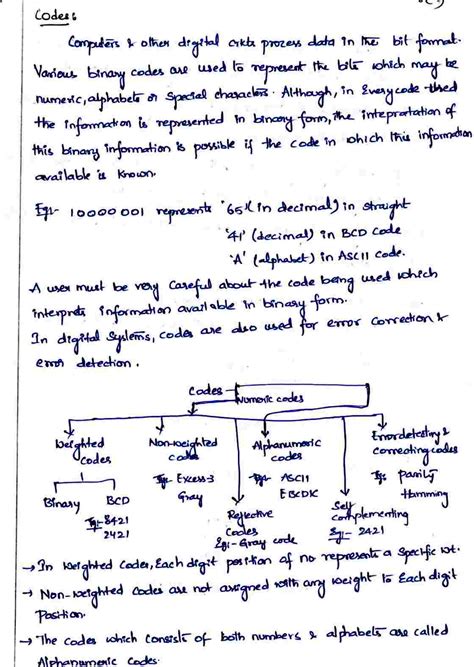 Codes:
Computers & other digital crkts prozess data in the bit format.
Various binary codes are used to represent the bits which may be
numeric, alphabets or special characters. Although, in every code used
the information is represented in binary form, the intepretation of
this binary information is possible if the code in which this information
available is known.
Eg:- 10000001 represents '65' (in decimal) in straight
'41' (decimal) in BCD code
'A' (alphabet) in ASCII code.
A user must be very careful about the code being used which
interprets information available in binary form.
In digital systems, codes are also used for error correction &
error detection.
Codes
Numeric codes
Weighted codes
Binary
BCD
Eg:- 8421
2421
Non-weighted codes
Eg:- Excess-3
Gray
Reflective
Codes
Eg:- Gray code
Alphanumeric
codes
Eg:- ASCII
EBCDIC
Self
complementing
Eg:- 2421
Errordetecting &
correcting codes
Eg: parity
Hamming
→ In weighted codes, Each digit position of no represents a specific wt.
→ Non-weighted codes are not assigned with any weight to each digit
position.
→ The codes which consists of both numbers & alphabets are called
Alphanumeric codes.